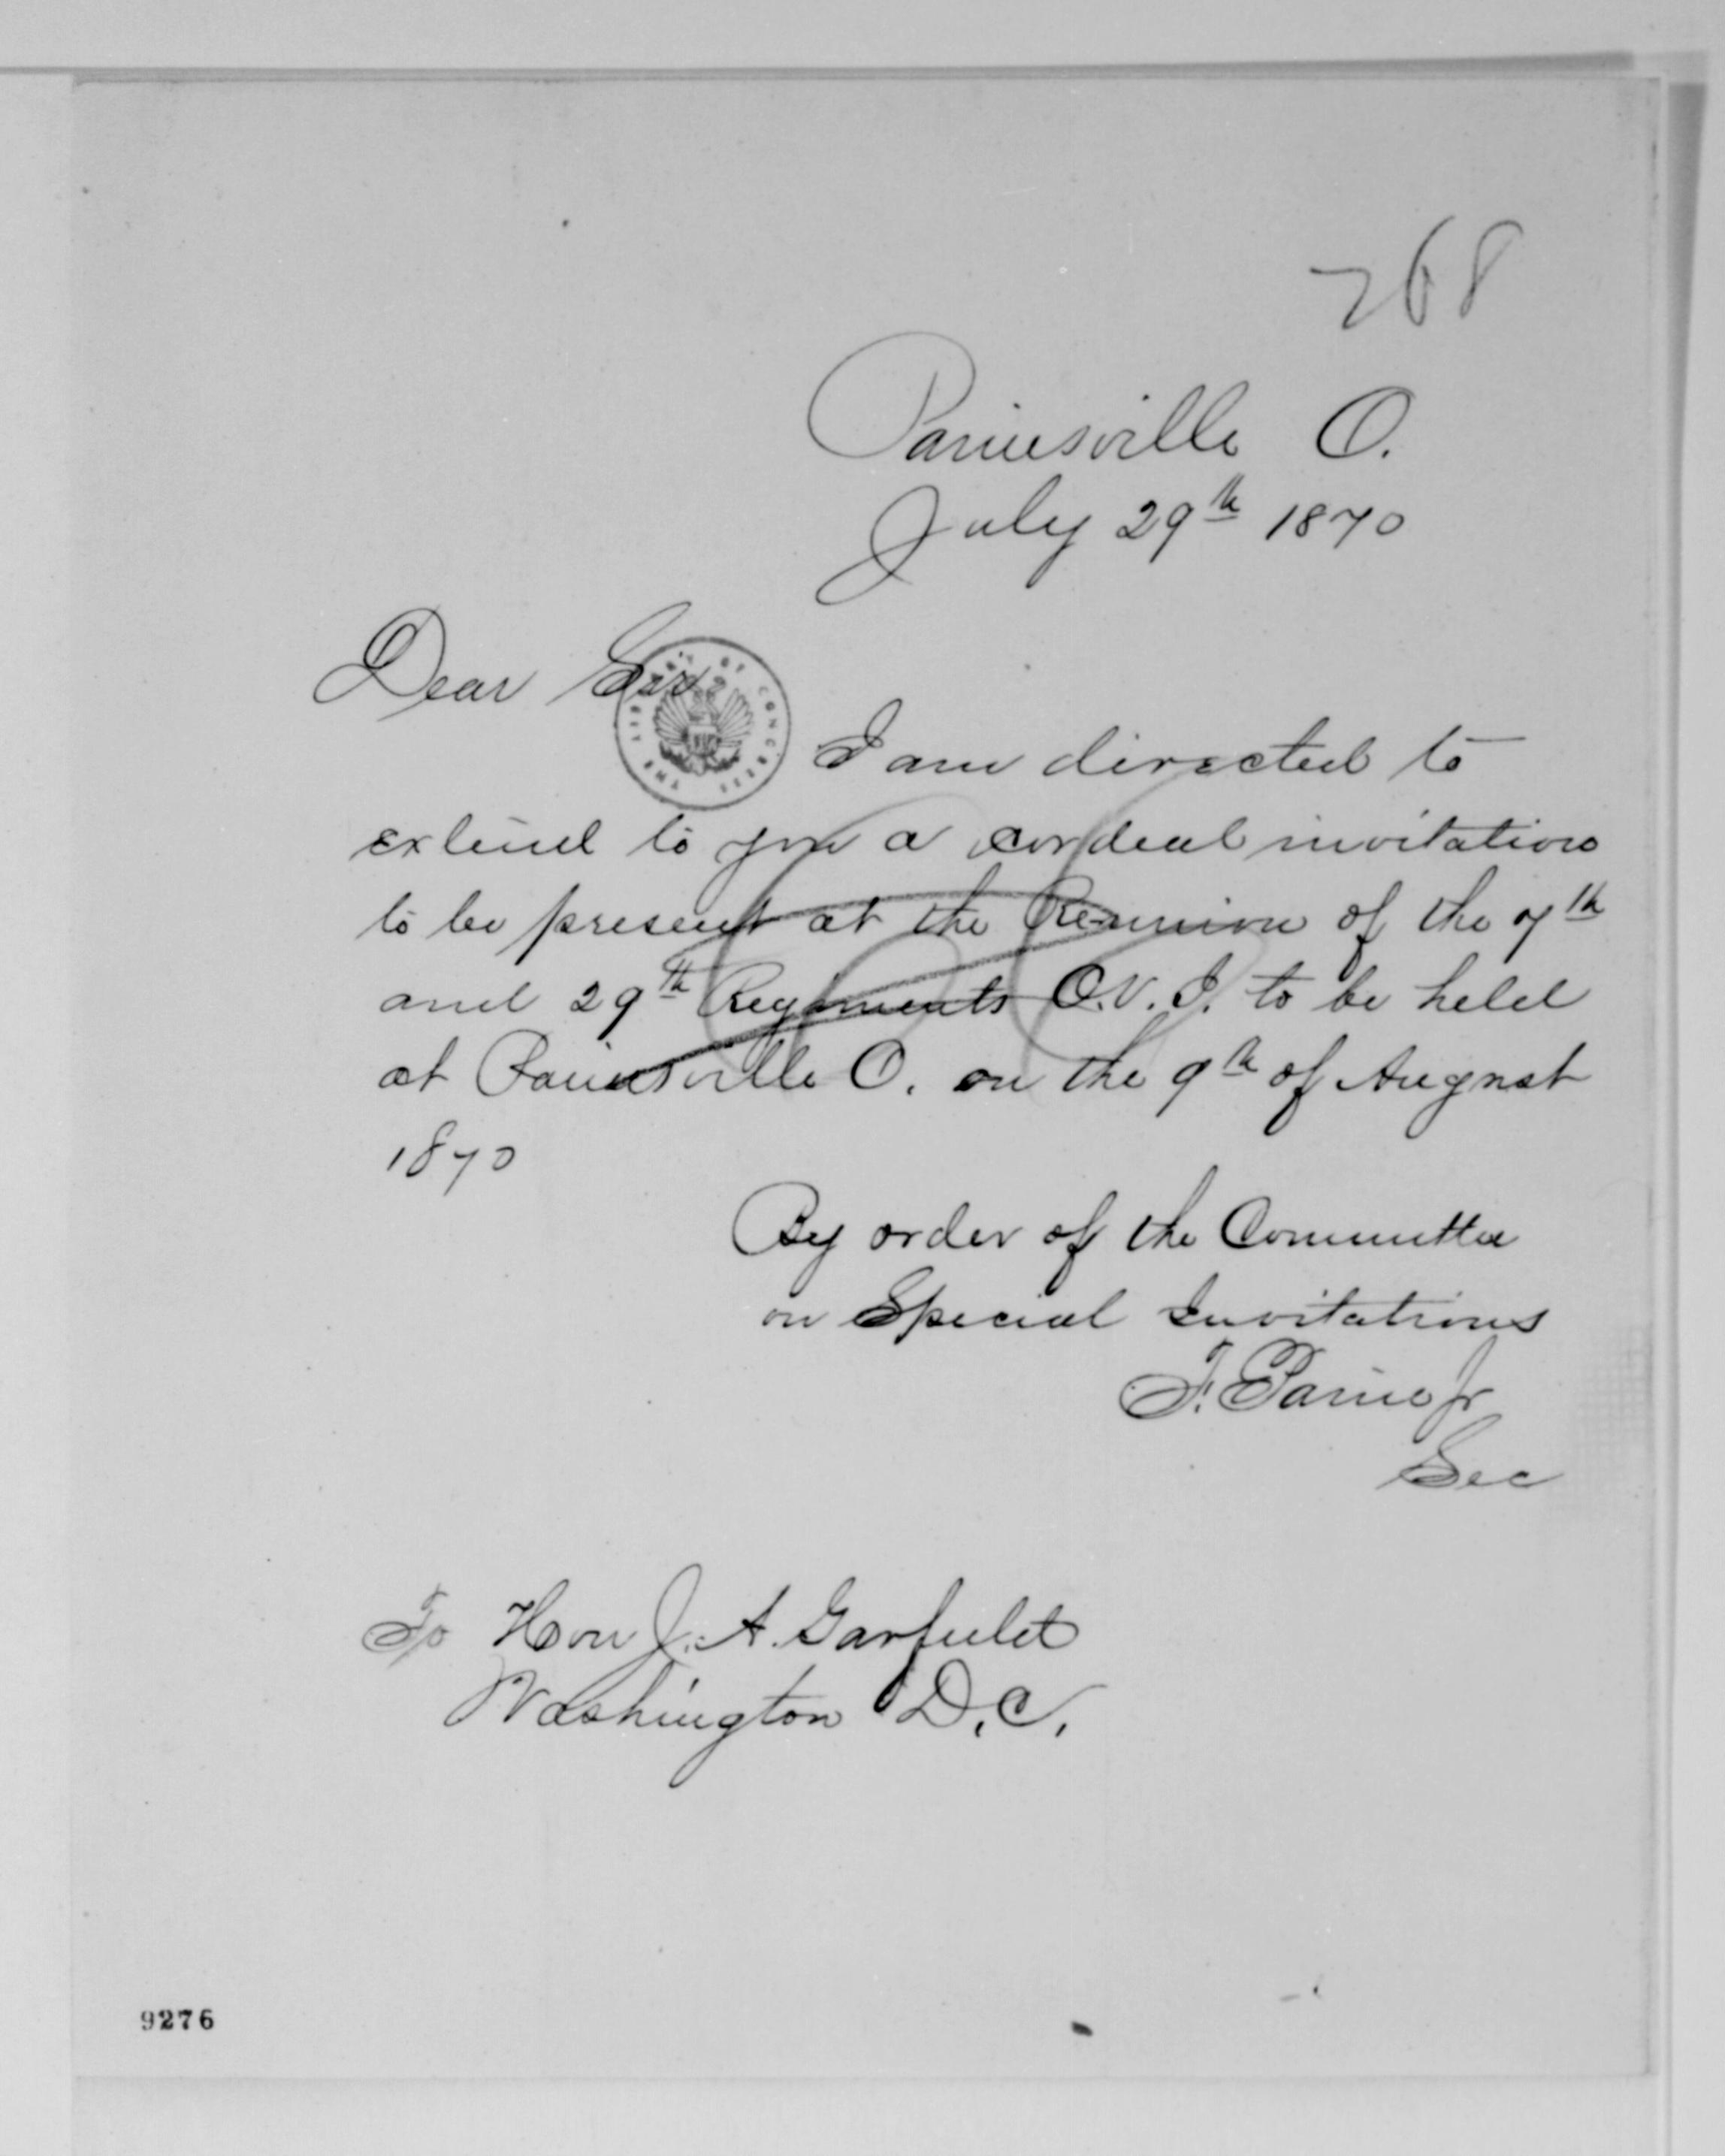 268
Painesville O.
July 29th 1870
Dear Sir
THE LIBRARY OF CONGRESS
I am directed to
extend to you a cordial invitation
to be present at the Reunion of the 7th
and 29th Regiments O.V.I. to be held
at Painesville O. on the 9th of August
1870
By order of the Committee
on Special Invitations
F. Paine Jr
Sec
To Hon J. A. Garfield
Washington D.C.
9276